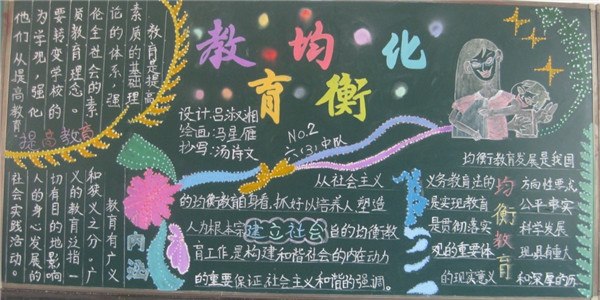 教 均 化
育 衡
设计:吕淑湘
绘画:冯星雁
抄写:汤诗文
NO.2
六(3)中队
教育是提高
素质的基础理
论的体系,强
伦全社会的素
质教育理念。
要转变学校的
为学观,强化
他们从提高教育
提高教育
内涵
教育有广义
和狭义之分。广
义的教育泛指一
切有目的地影响
人的身心发展的
社会实践活动。
从社会主义
的均衡教能自身看,抓好以培养人塑造
人为根本宗 建立社会 自的均衡教
育工作是构建和谐社会的内在动力
的重要保证社会主义和谐的强调。
均衡教育发展是我国
义务教育法的 方向性要求
是实现教育 公平中实
是贯彻落实 科学发展
观的重要体 现具有重大
的现实意义 和深厚的历
均衡教育